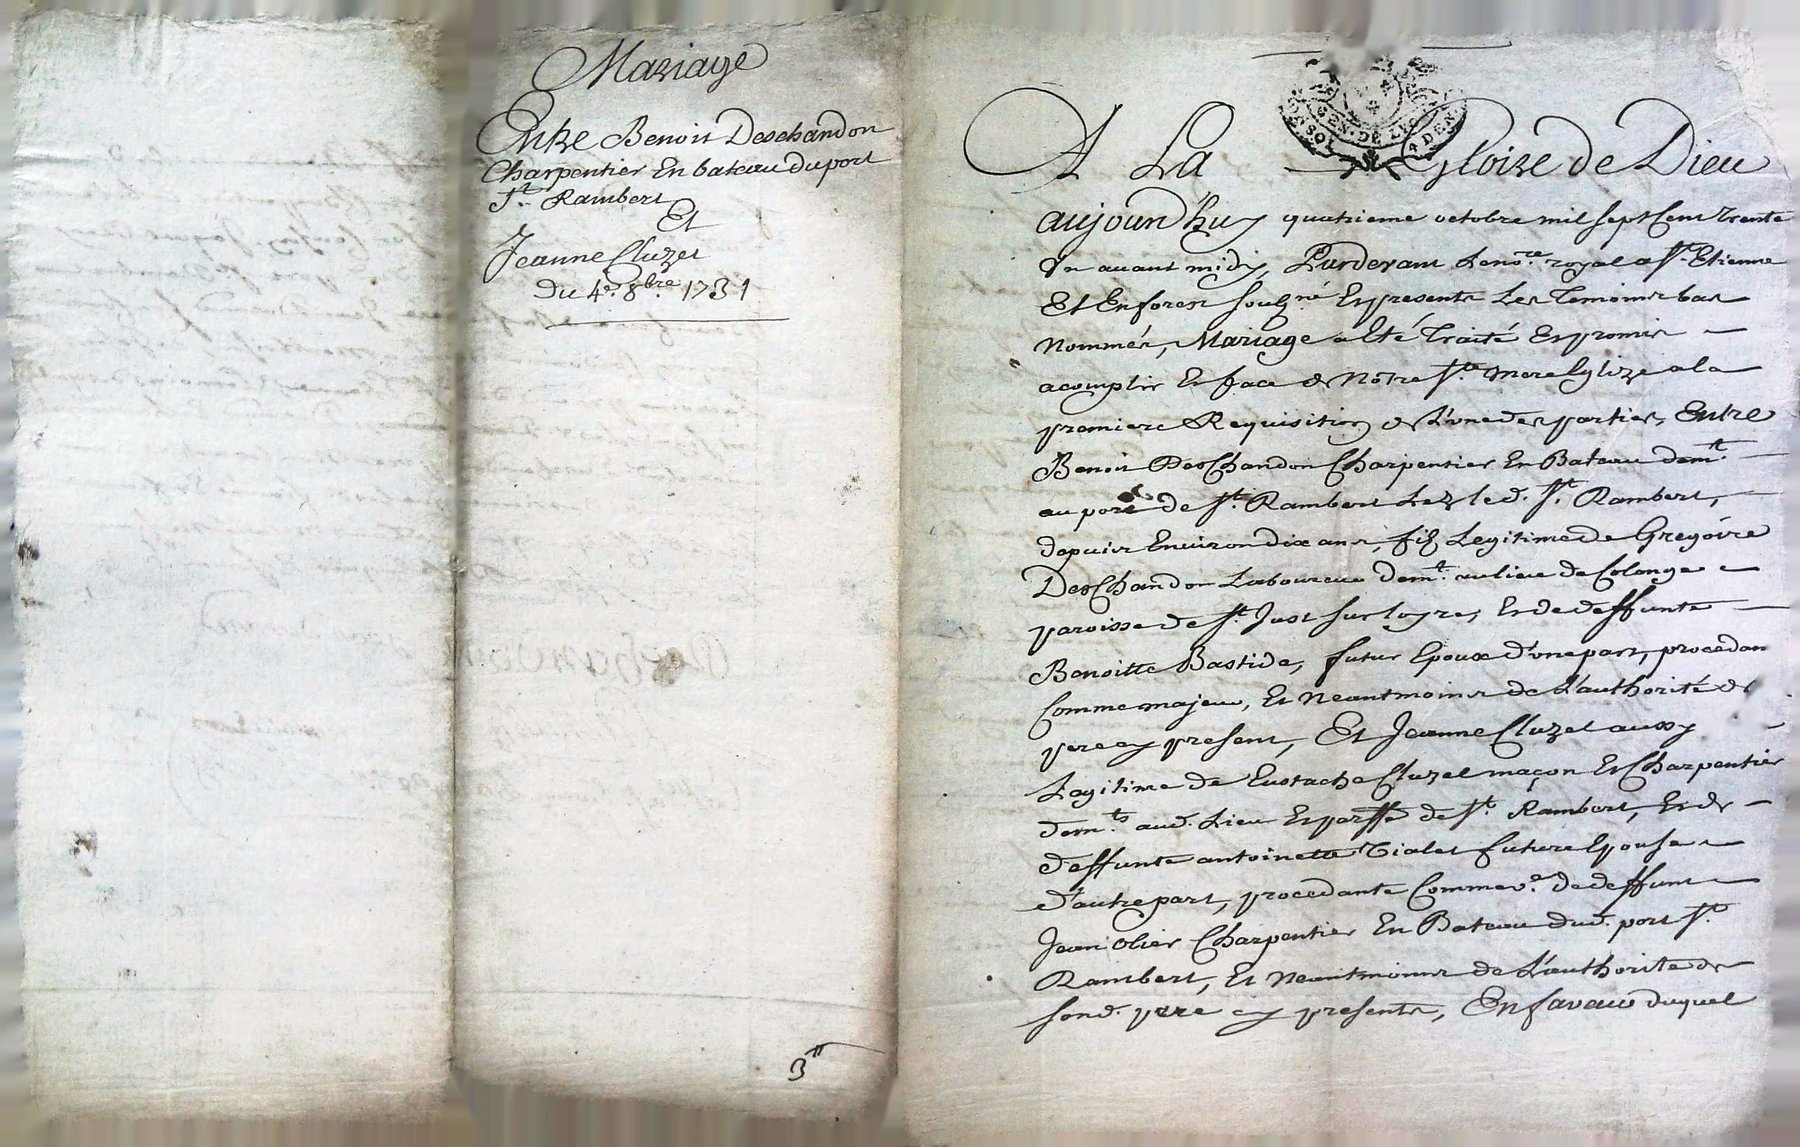 Mariage
Entre Benoit Deschandon
Charpentier En bateau du port
St. Rambert
Et
Jeanne Cluzel
Du 4e. 8bre. 1731
3tt
GEN. DE LYON
4 DEN
A La Gloire de Dieu
aujourd'huy quatrieme octobre mil sept Cent trente
Un avant midy, Pardevant Le nore. royal a St. Etienne
Et En forest soubzné Et presents Les temoins bas
Nommés, Mariage a Eté traité Et promis
acomplir En face de Notre Ste. mere Eglize a la
premiere Requisition de L'une des parties, Entre
Benoit DesChandon Charpentier En Bateau demt.
au port de St. Rambert Lez led. St. Rambert,
depuis Environ dix ans, filz Legitime de Gregoire
DesChandon Laboureur demt. au lieu de Colonge
paroisse de St. Just sur loyre, Et de deffunte
Benoitte Bastide, futur Epoux d'une part, procedan
Comme majeur, Et Neantmoins de L'authorité de
pere cy present, Et Jeanne Cluzel aussy
Legitime de Eustache Cluzel maçon Et Charpentier
demts. aud. Lieu Et parsse de St. Rambert, Et de
deffunte antoinette Vialet future Epouse
d'autre part, procedante Comme ve. de deffunt
Jean Olier Charpentier En Bateau dud. port St.
Rambert, Et Neantmoins de L'authorité de
sond. pere cy presente, En faveur duquel